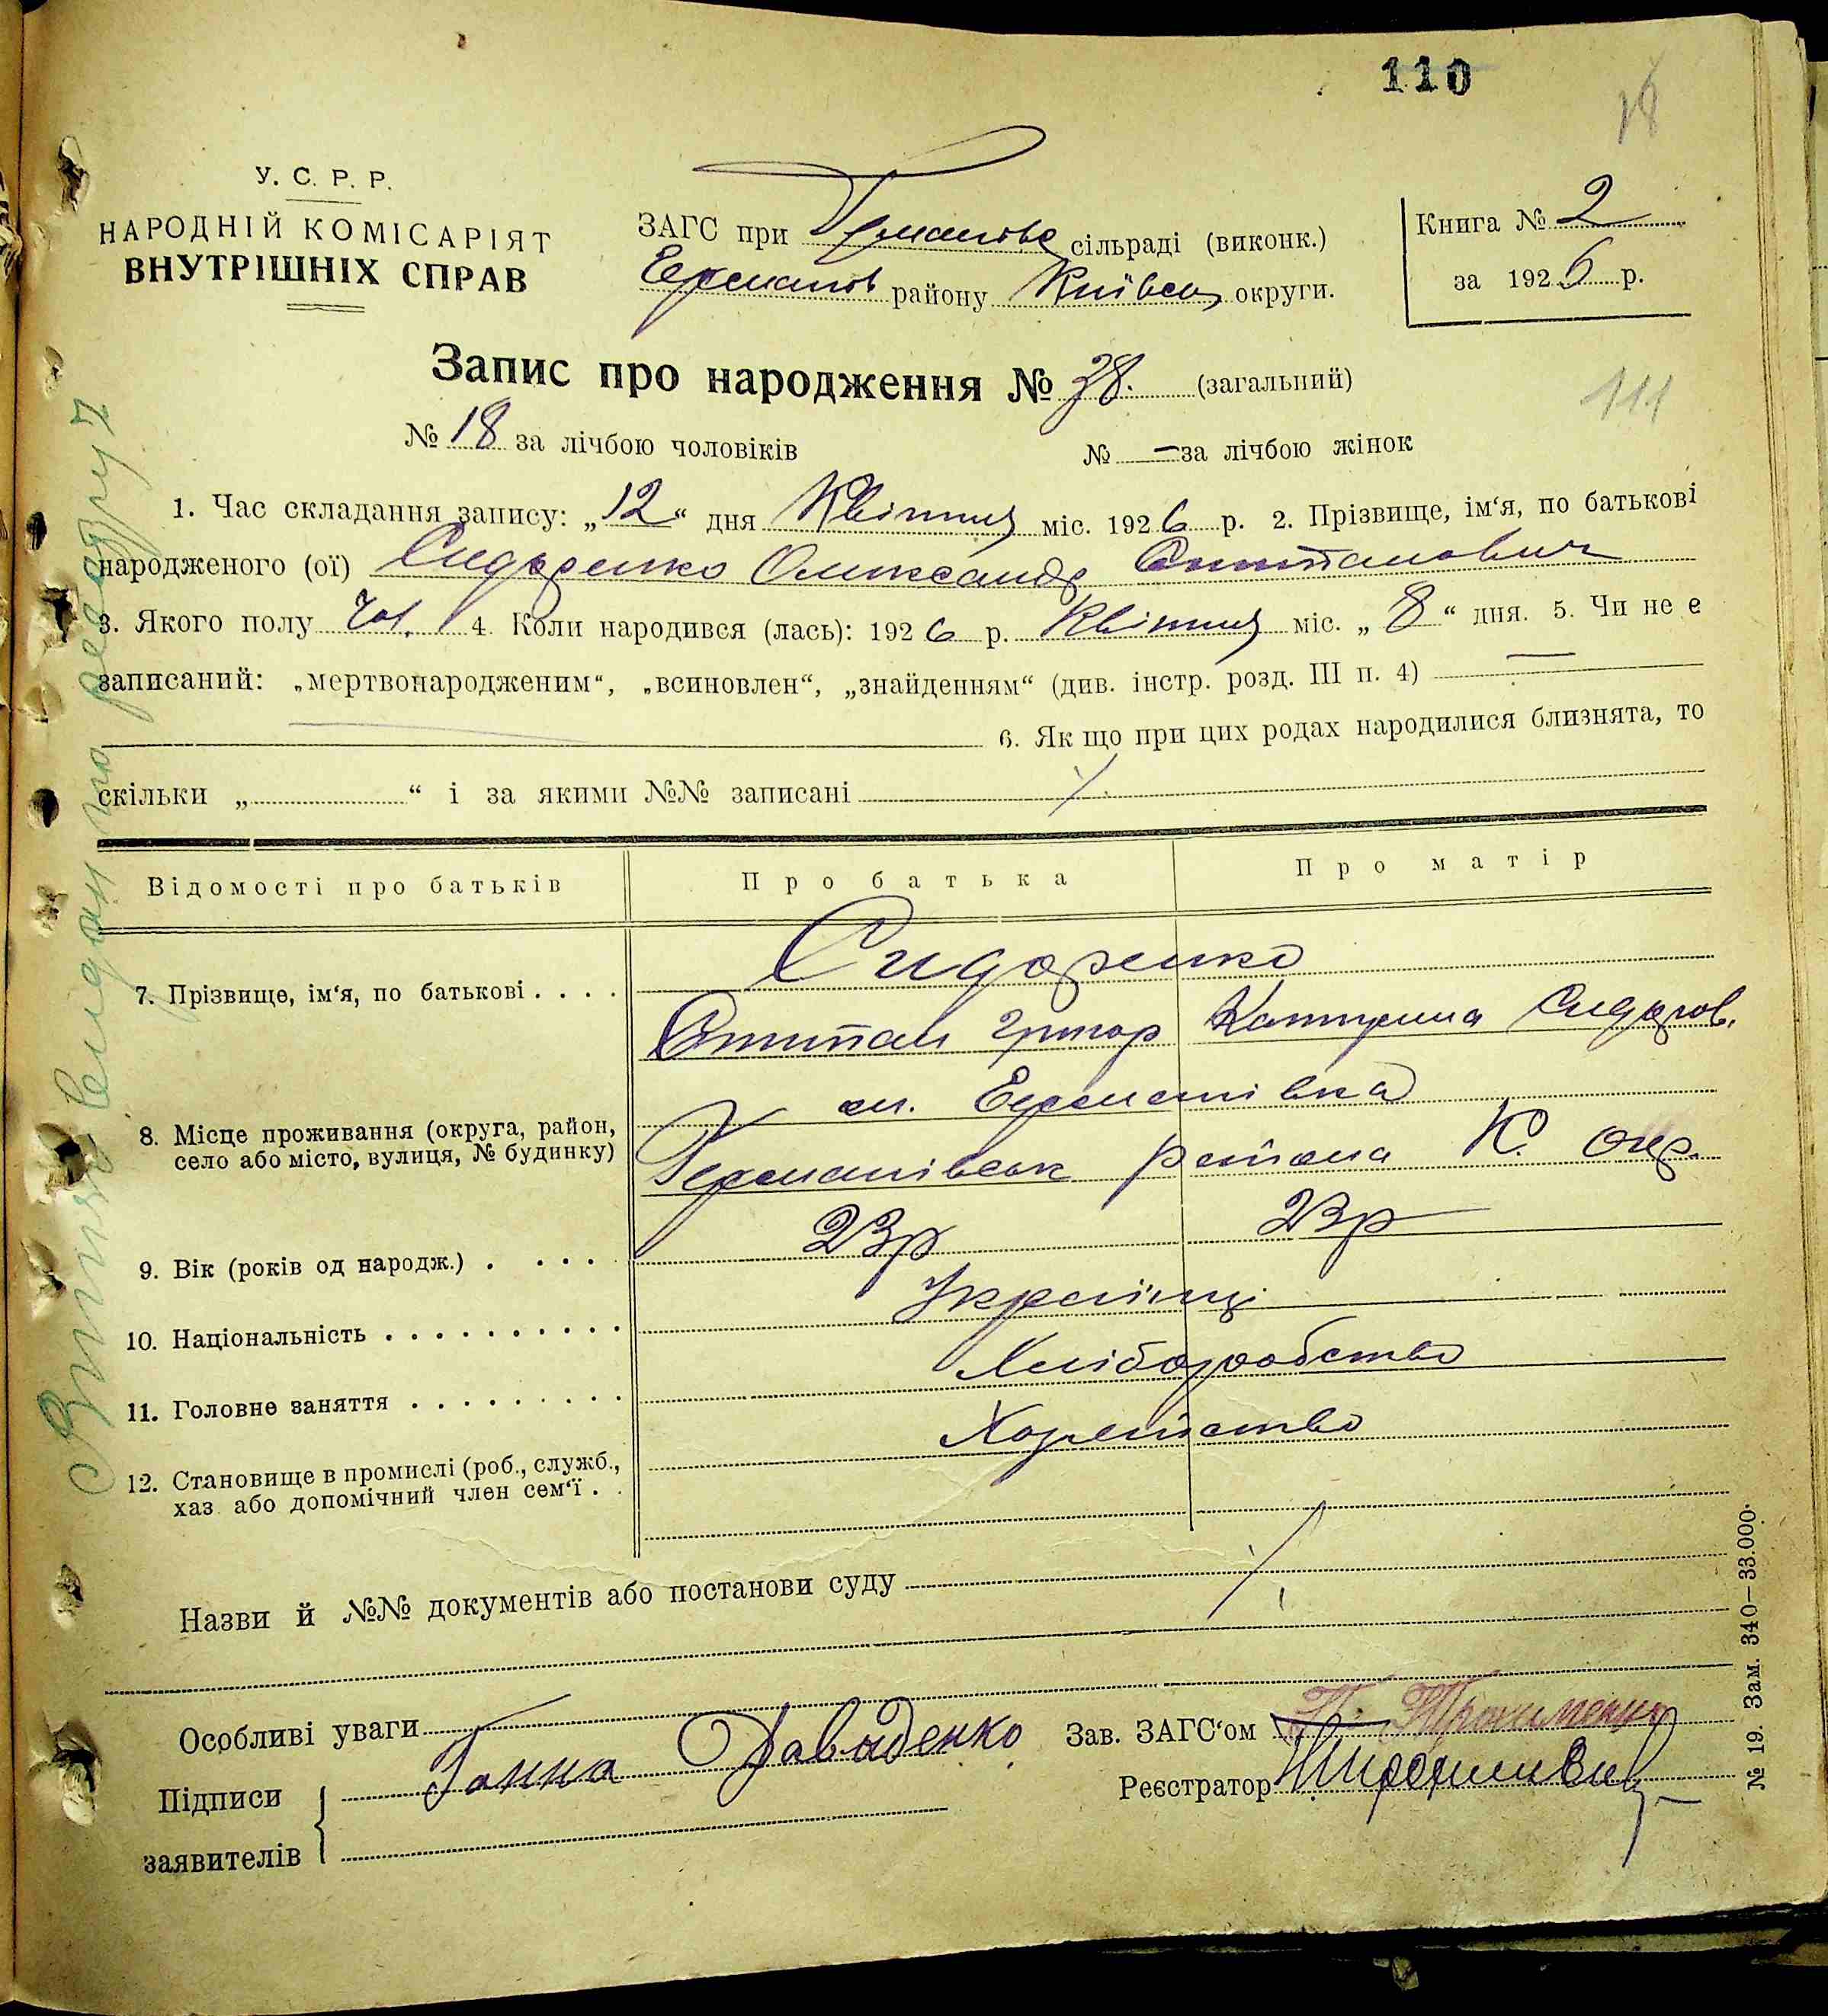 110
18
У. С. Р. Р.
НАРОДНІЙ КОМІСАРІЯТ
ВНУТРІШНІХ СПРАВ
ЗАГС при сільраді (виконк.)
району Київськ округи.
Книга № 2
за 1926 р.
Запис про народження № 38. (загальний)
111
№ 18 за лічбою чоловіків № — за лічбою жінок
1. Час складання запису: „12“ дня Квітня міс. 1926 р. 2. Прізвище, ім‘я, по батькові
народженого (ої) Сидоренко Олександр Степанович
3. Якого полу Чол. 4. Коли народився (лась): 1926 р. Квітня міс. „8“ дня. 5. Чи не є
записаний: „мертвонародженим“, „всиновлен“, „знайденням“ (див. інстр. розд. III п. 4) —
6. Як що при цих родах народилися близнята, то
скільки „ “ і за якими №№ записані
Відомості про батьків Про батька Про матір
7. Прізвище, ім‘я, по батькові . . . . Сидоренко
Степан Григор Катерина Сидоров.
8. Місце проживання (округа, район, м. Германівка
село або місто, вулиця, № будинку) Германівськ района К. окр.
9. Вік (років од народж.) . . . . 23р 23р
10. Національність . . . . . . . . . . Українці
11. Головне заняття . . . . . . . . . Хліборобство
12. Становище в промислі (роб., служб.,
хаз або допомічний член сем‘ї . .
Назви й №№ документів або постанови суду
Особливі уваги
Зав. ЗАГС‘ом
Підписи
заявителів
Ганна Давиденко
Реєстратор
№ 19. Зам. 340—33.000.